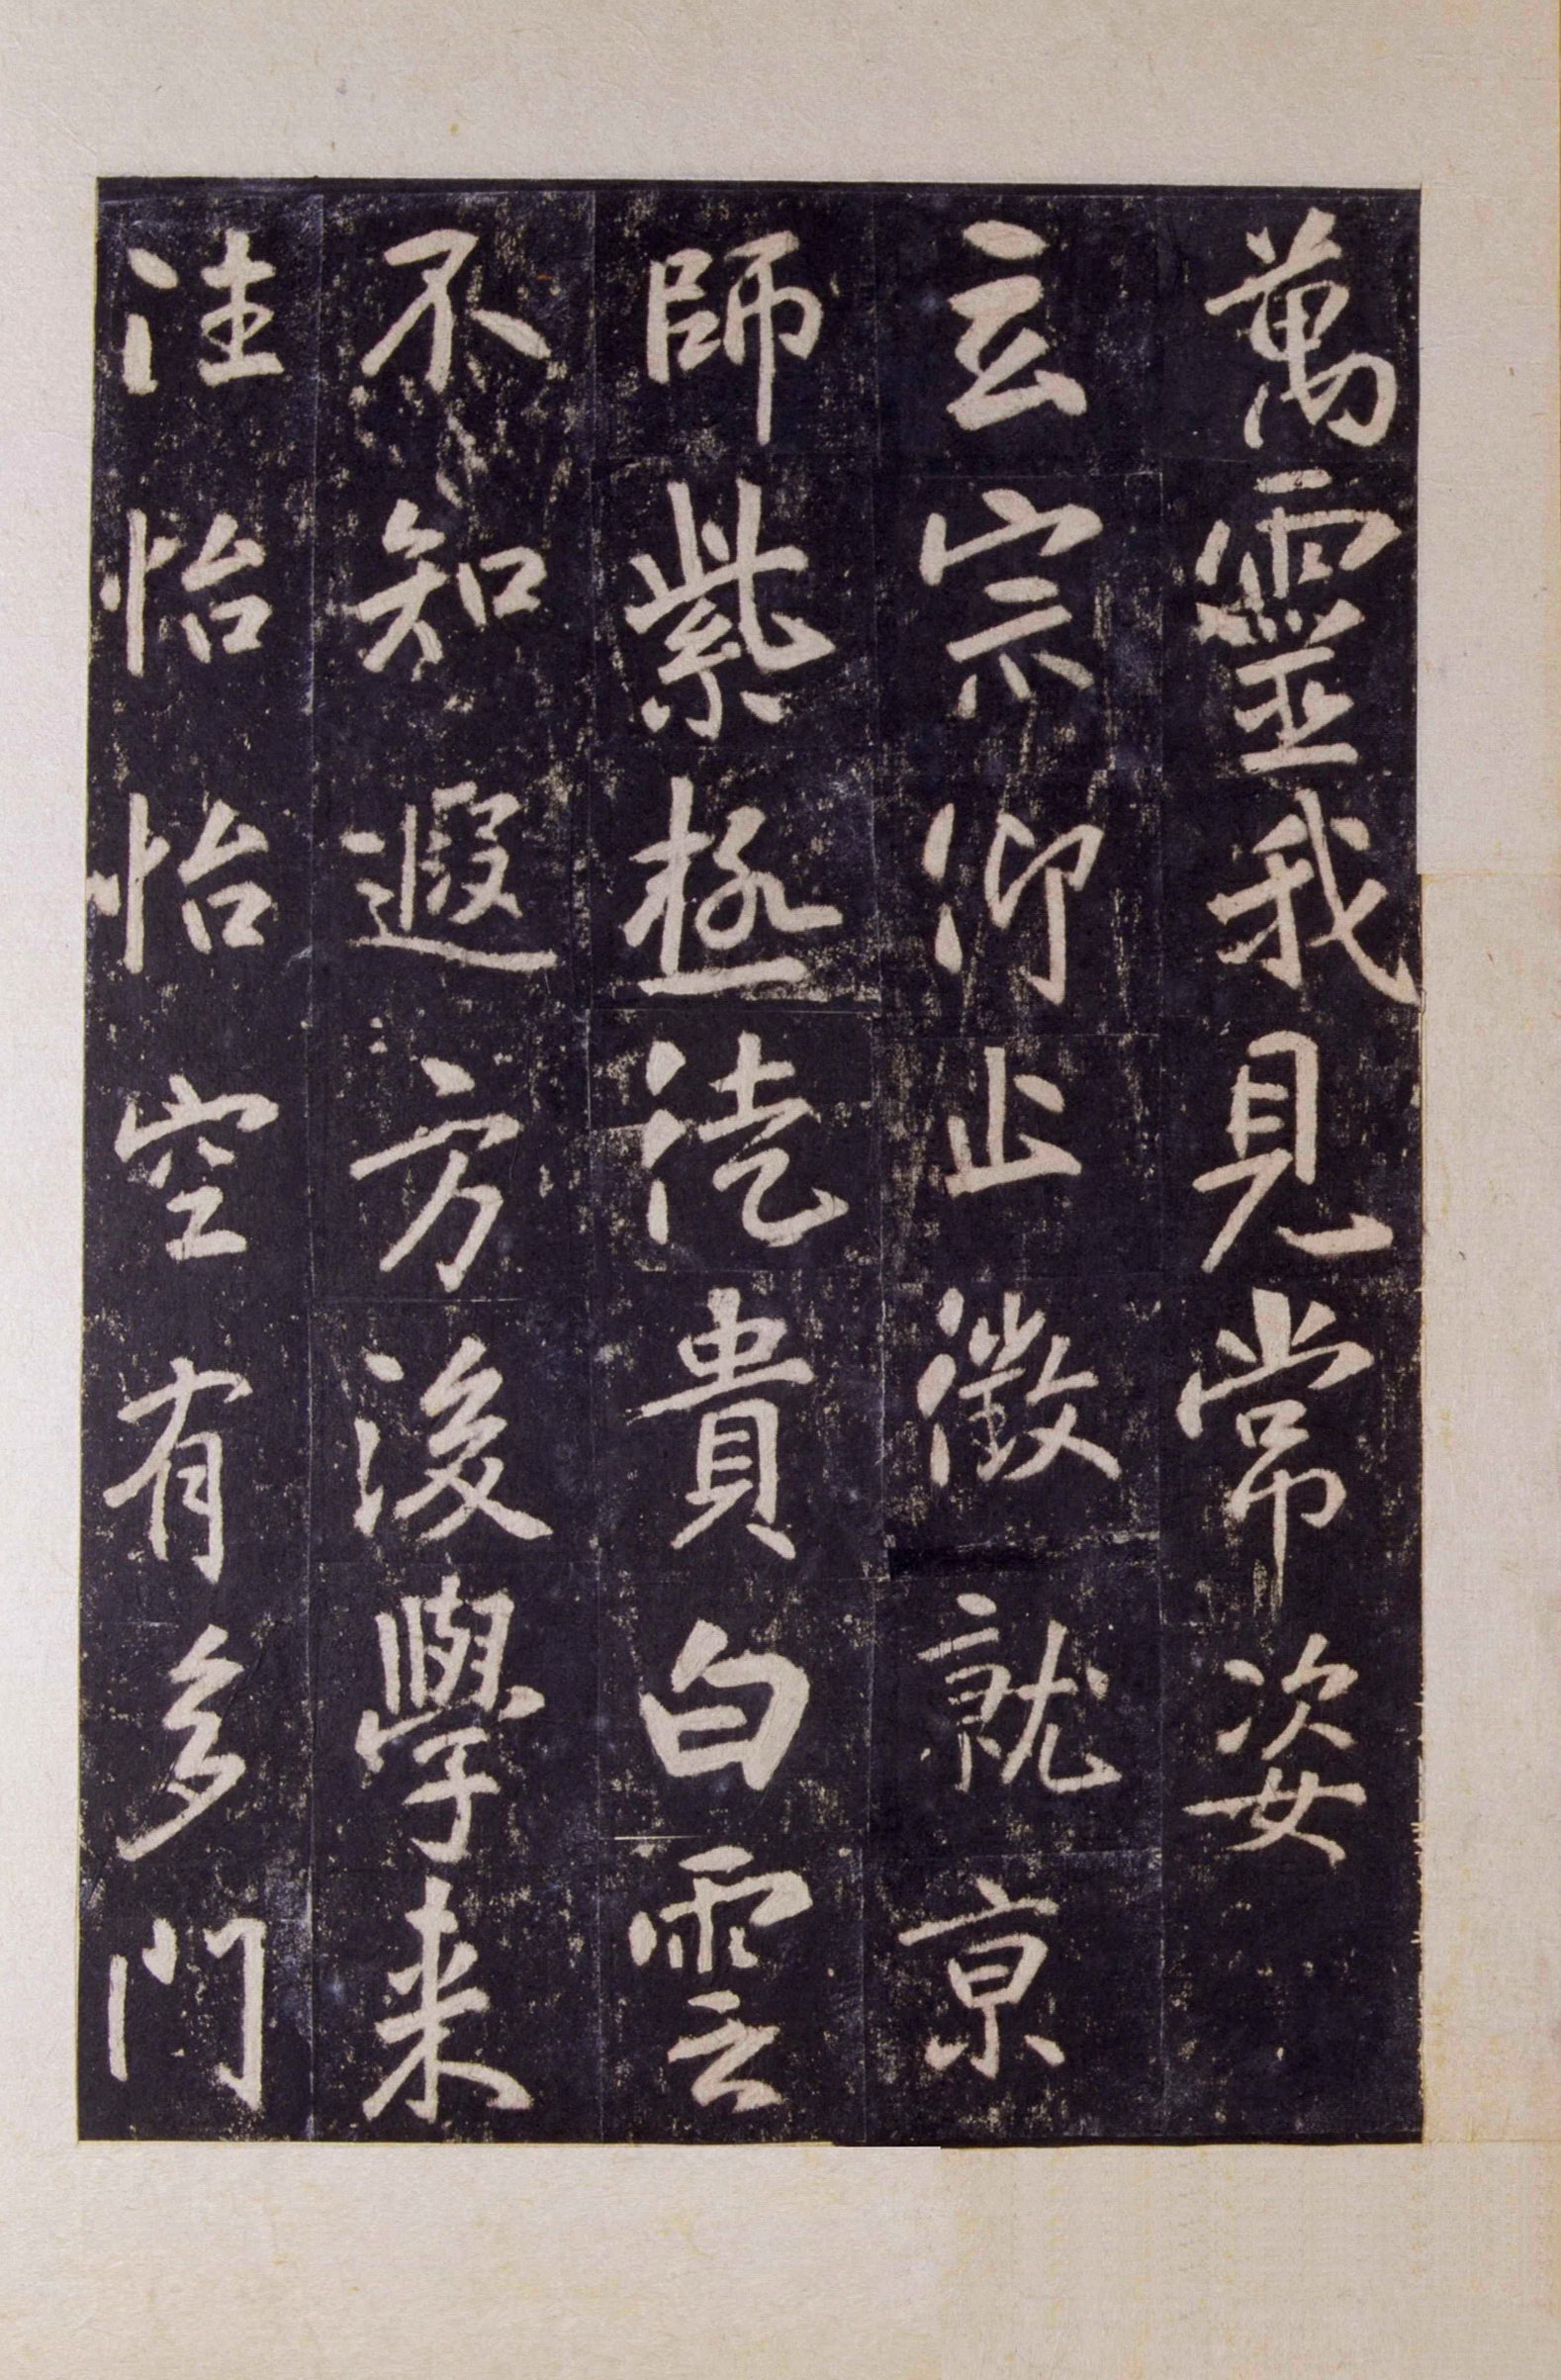 萬靈我見常姿
玄宗仰止徵就京
師紫極法貴白雲
不知遐方後學来
注怡怡空有多門